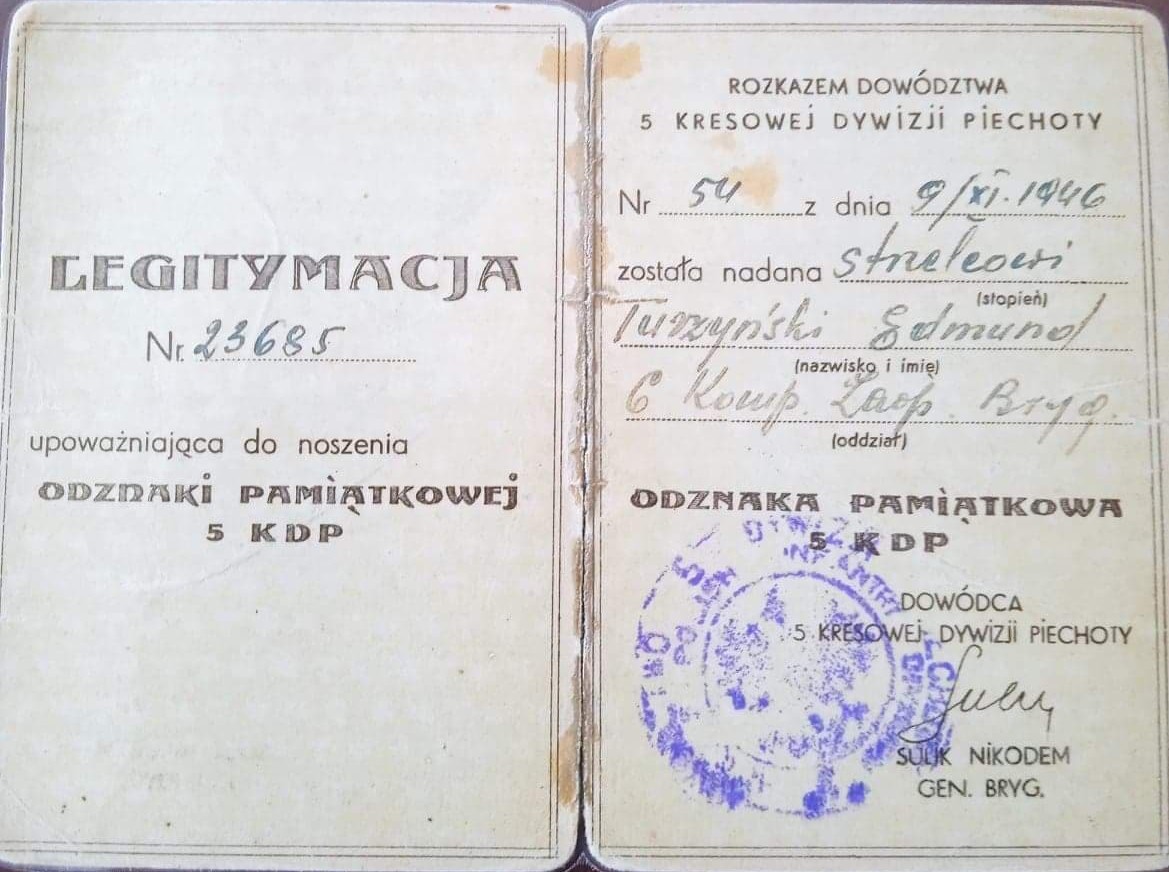 LEGITYMACJA
Nr. 23685
upoważniająca do noszenia
ODZNAKI PAMIĄTKOWEJ
5 KDP
ROZKAZEM DOWÓDZTWA
5 KRESOWEJ DYWIZJI PIECHOTY
Nr 54 z dnia 9/XI.1946
została nadana strzelcowi
(stopień)
Turzyński Edmund
(nazwisko i imię)
6 Komp. Zaop. Bryg.
(oddział)
ODZNAKA PAMIĄTKOWA
5 KDP
DOWÓDCA
5 KRESOWEJ DYWIZJI PIECHOTY
SULIK NIKODEM
GEN. BRYG.